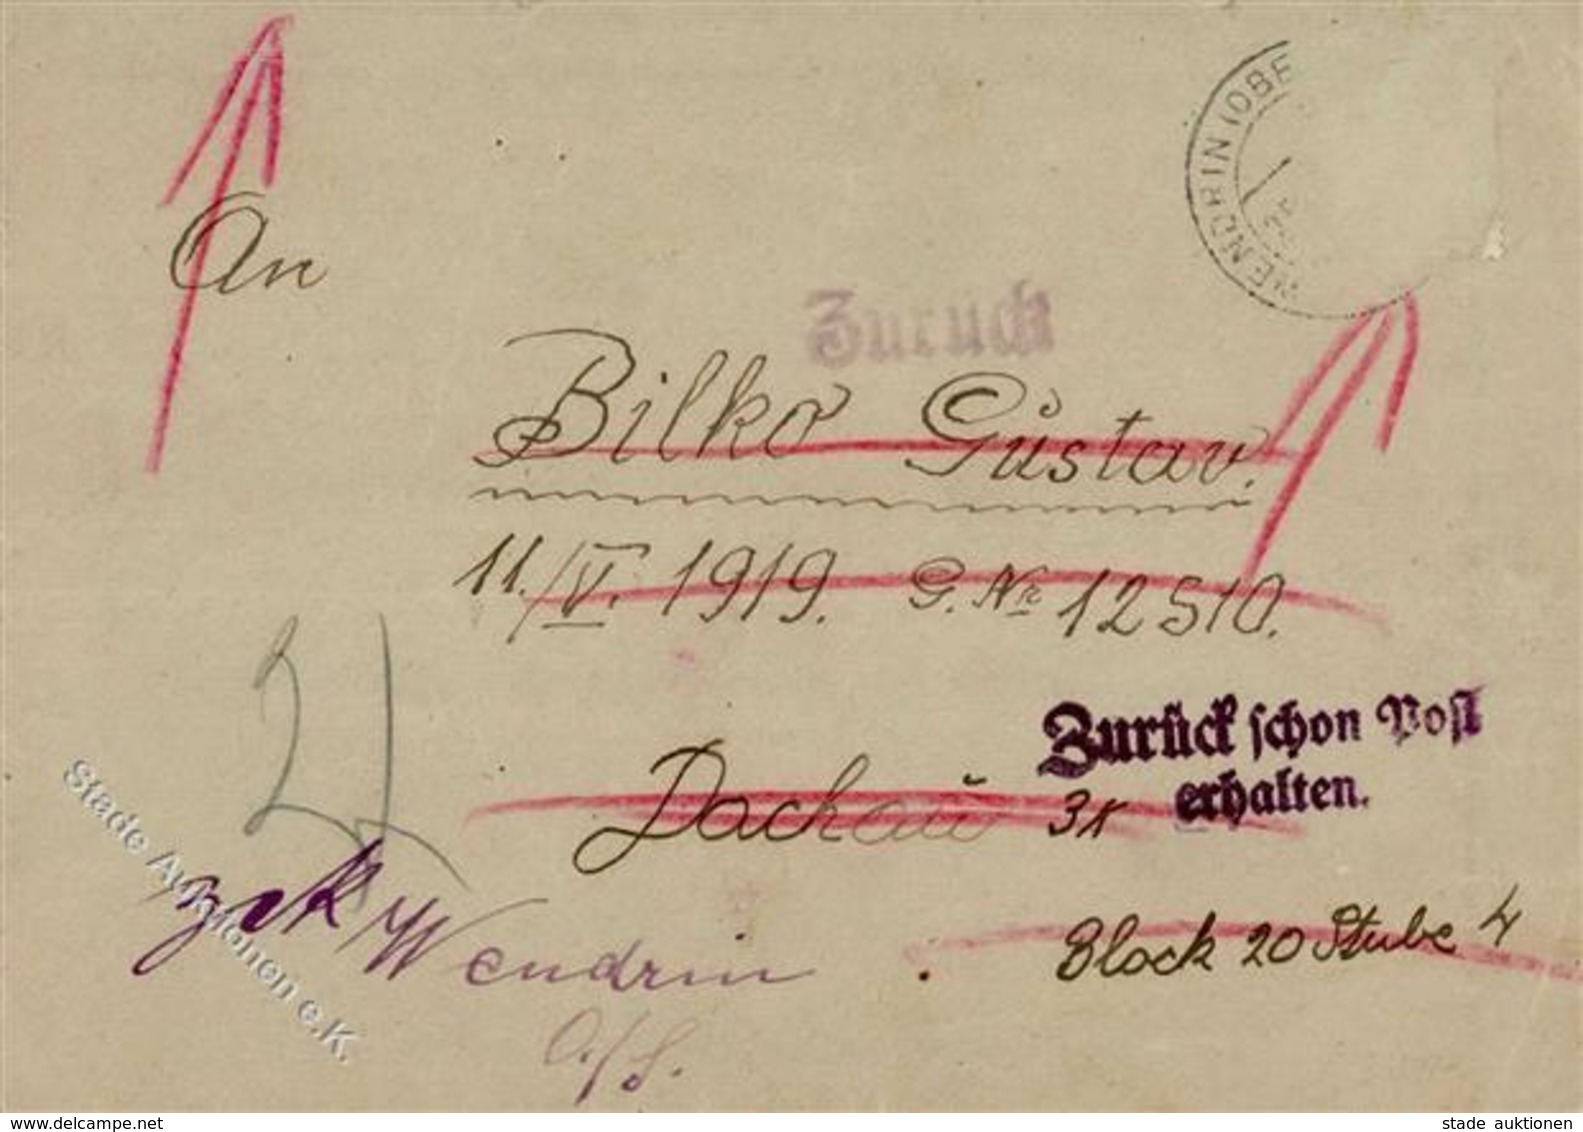 WENDRIN (OBE
25
An
Zurück
Bilko Gustav.
11./V. 1919. G. Nr 12510.
Zurück schon Post
erhalten.
Dachau 3K
Block 20 Stube 4
zck Wendrin
O./S.
Stade Auktionen e.K.
www.delcampe.net
stade auktionen